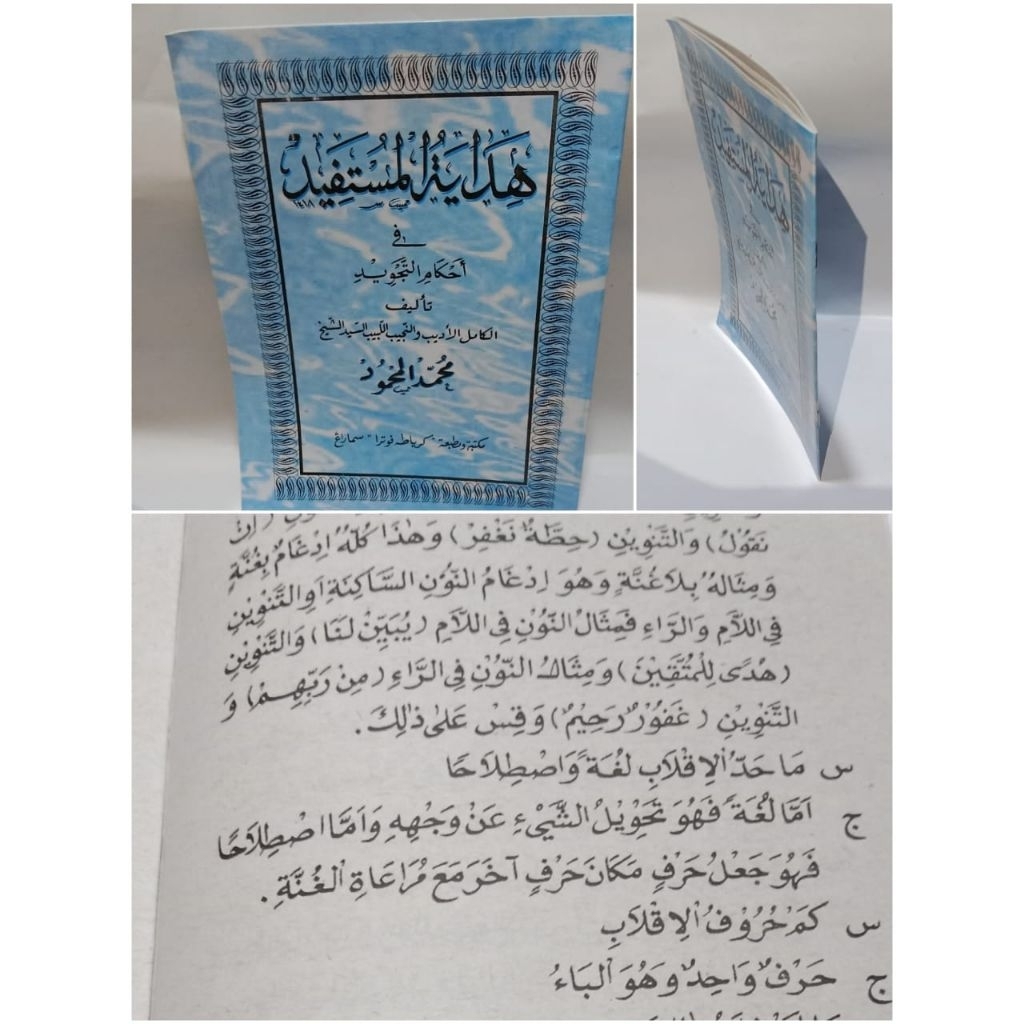 هِدَايَةُ الْمُسْتَفِيْدِ
فى
أَحْكَامِ التَّجْوِيْدِ
تأليف
الكامل الأديب والنجيب اللبيب السيد الشيخ
مُحَمَّدُ الْمَحْمُوْدُ
مكتبة ومطبعة "كرياطه فوترا" سماراغ
هِدَايَةُ الْمُسْتَفِيْدِ
نَقُوْلُ) وَالتَّنْوِيْنِ (حِطَّةٌ نَغْفِرْ) وَهٰذَا كُلُّهُ اِدْغَامٌ بِغُنَّةٍ
وَمِثَالُهُ بِلَاغُنَّةٍ وَهُوَ اِدْغَامُ النُّوْنِ السَّاكِنَةِ اَوِالتَّنْوِيْنِ
فِى اللَّامِ وَالرَّاءِ فَمِثَالُ النُّوْنِ فِى اللَّامِ (يُبَيِّنْ لَنَا) وَالتَّنْوِيْنِ
(هُدًى لِلْمُتَّقِيْنَ) وَمِثَالُ النُّوْنِ فِى الرَّاءِ (مِنْ رَبِّهِمْ) وَ
التَّنْوِيْنِ (غَفُوْرٌ رَحِيْمٌ) وَقِسْ عَلٰى ذٰلِكَ.
س مَا حَدُّ الْاِقْلَابِ لُغَةً وَاصْطِلَاحًا
ج اَمَّا لُغَةً فَهُوَ تَحْوِيْلُ الشَّيْءِ عَنْ وَجْهِهِ وَاَمَّا اصْطِلَاحًا
فَهُوَ جَعْلُ حَرْفٍ مَكَانَ حَرْفٍ آخَرَ مَعَ مُرَاعَاةِ الْغُنَّةِ.
س كَمْ حُرُوْفُ الْاِقْلَابِ
ج حَرْفٌ وَاحِدٌ وَهُوَ الْبَاءُ